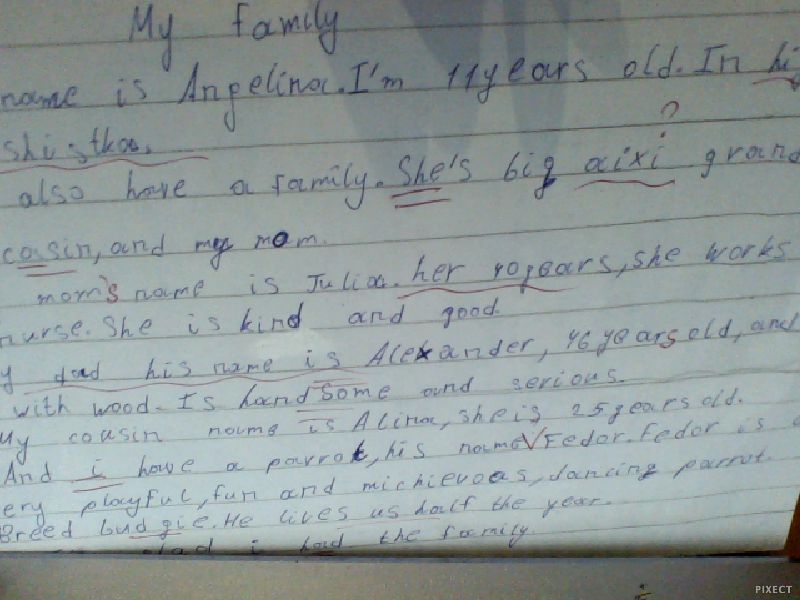 My family
name is Angelina. I'm 11 years old. In hi
shistka.
?
also have a family. She's big aixi grand
casin, and my mom.
mom's name is Julia. her 40 years, she works
nurse. She is kind and good.
y dad his name is Alexander, 46 years old, and
with wood. Is handsome and serious.
My cousin name is Alina, she is 25 years old.
And i have a parrot, his name √ Fedor. Fedor is a
ery playful, fun and michievoes, dancing parrot.
Breed budgie. He lives us half the year.
glad i had the family.
PIXECT